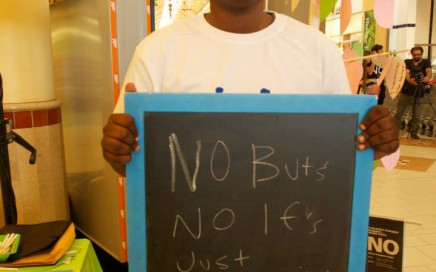 NO Buts
NO If's
Just ....
NO